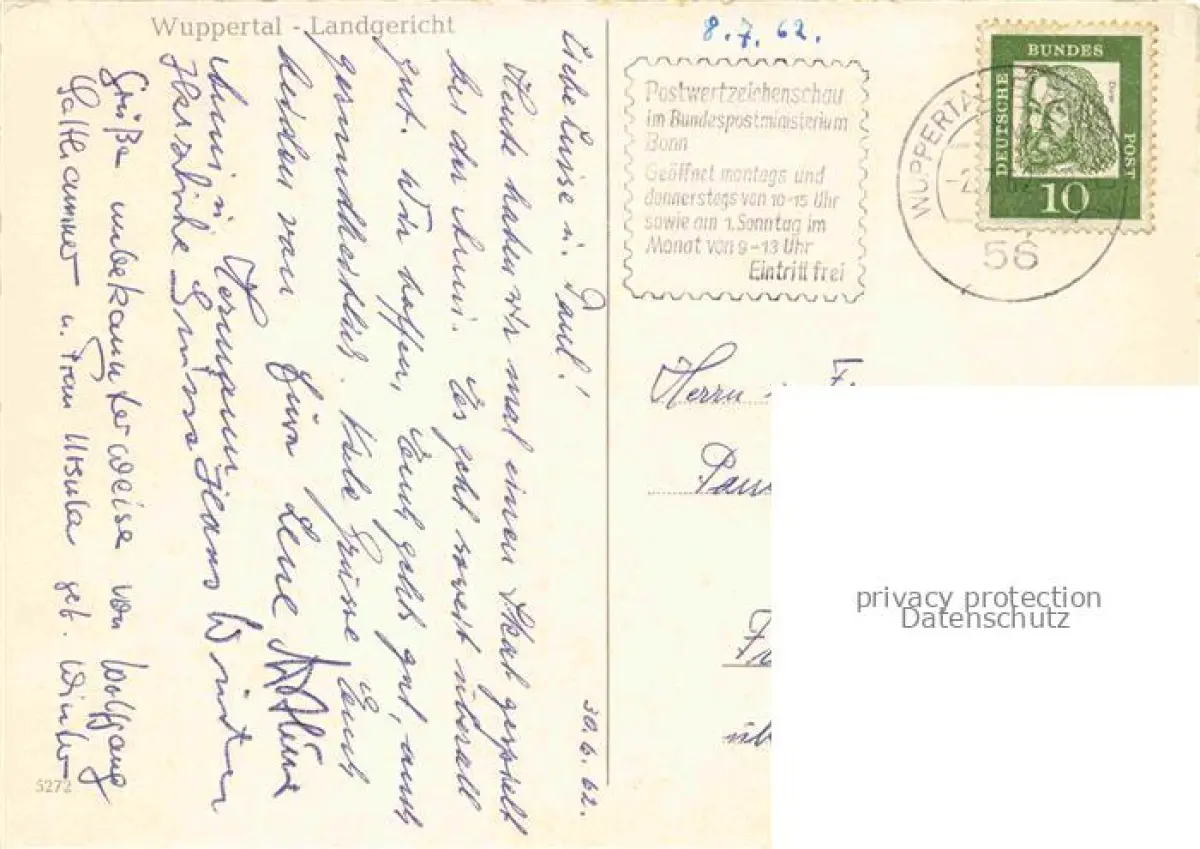 Wuppertal - Landgericht
8.7.62.
Postwertzeichenschau
im Bundespostministerium
Bonn
Geöffnet montags und
donnerstags von 10-15 Uhr
sowie am 1. Sonntag im
Monat von 9-13 Uhr
Eintritt frei
WUPPERTAL
56
DEUTSCHE
BUNDES
POST
Dürer
10
30.6.62.
Liebe Luise u. Paul!
Heute haben wir mal einen Skat gespielt
bei der Anni. Es geht soweit überall
gut. Wir hoffen, Euch gehts gut, auch
gesundheitlich. Viele Grüsse Euch
beiden von Eure Lene
Anni u. Hermann
Herzliche Grüsse Hans Winter
Grüße unbekannterweise von Wolfgang
u. Frau Ursula geb. Winter
Herrn
5272
privacy protection
Datenschutz